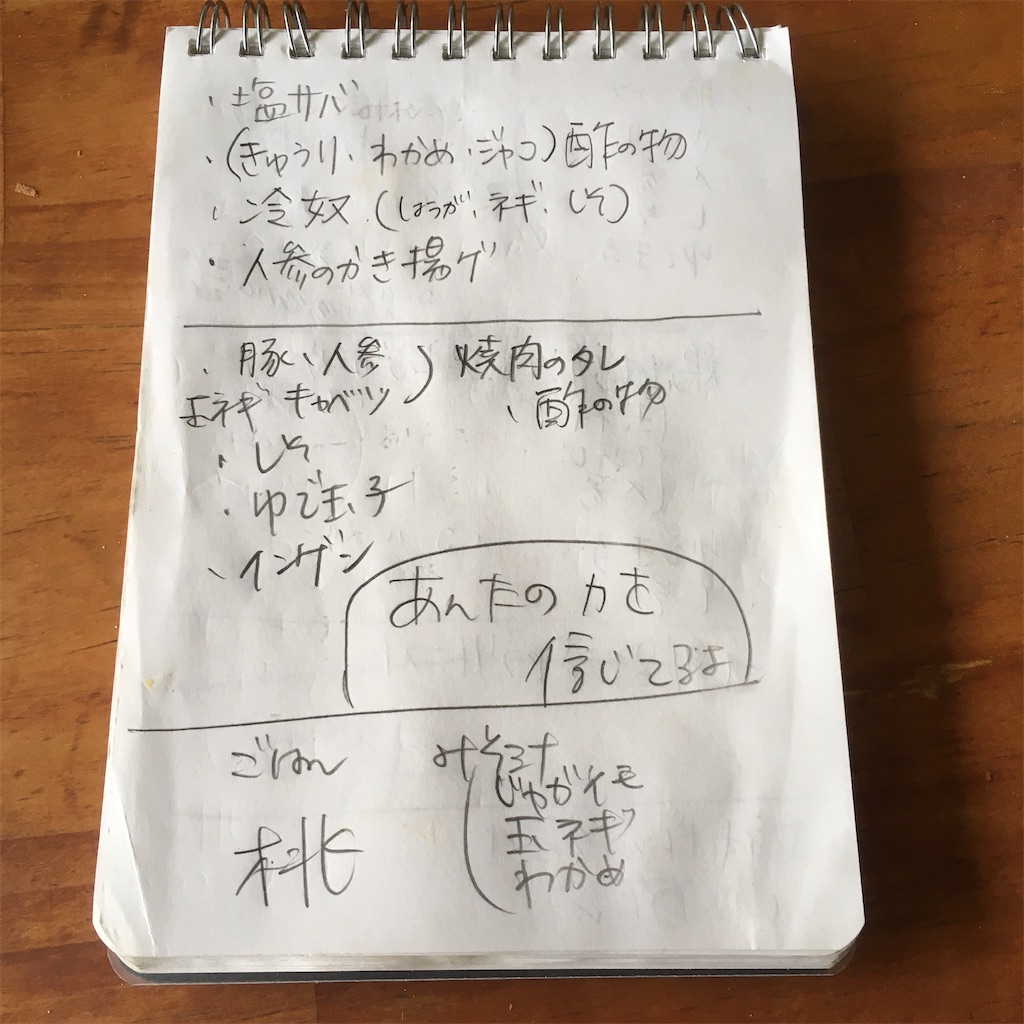 ・塩サバ
・(きゅうり・わかめ・ジャコ)酢の物
・冷奴(しょうが、ネギ、しそ)
・人参のかき揚げ
・豚、人参 ) 焼肉のタレ
玉ネギ キャベツ 、酢の物
・しそ
・ゆで玉子
、インゲン
あんたの力を
信じてるよ
ごはん みそ汁
じゃがイモ
玉ネギ
わかめ
桃